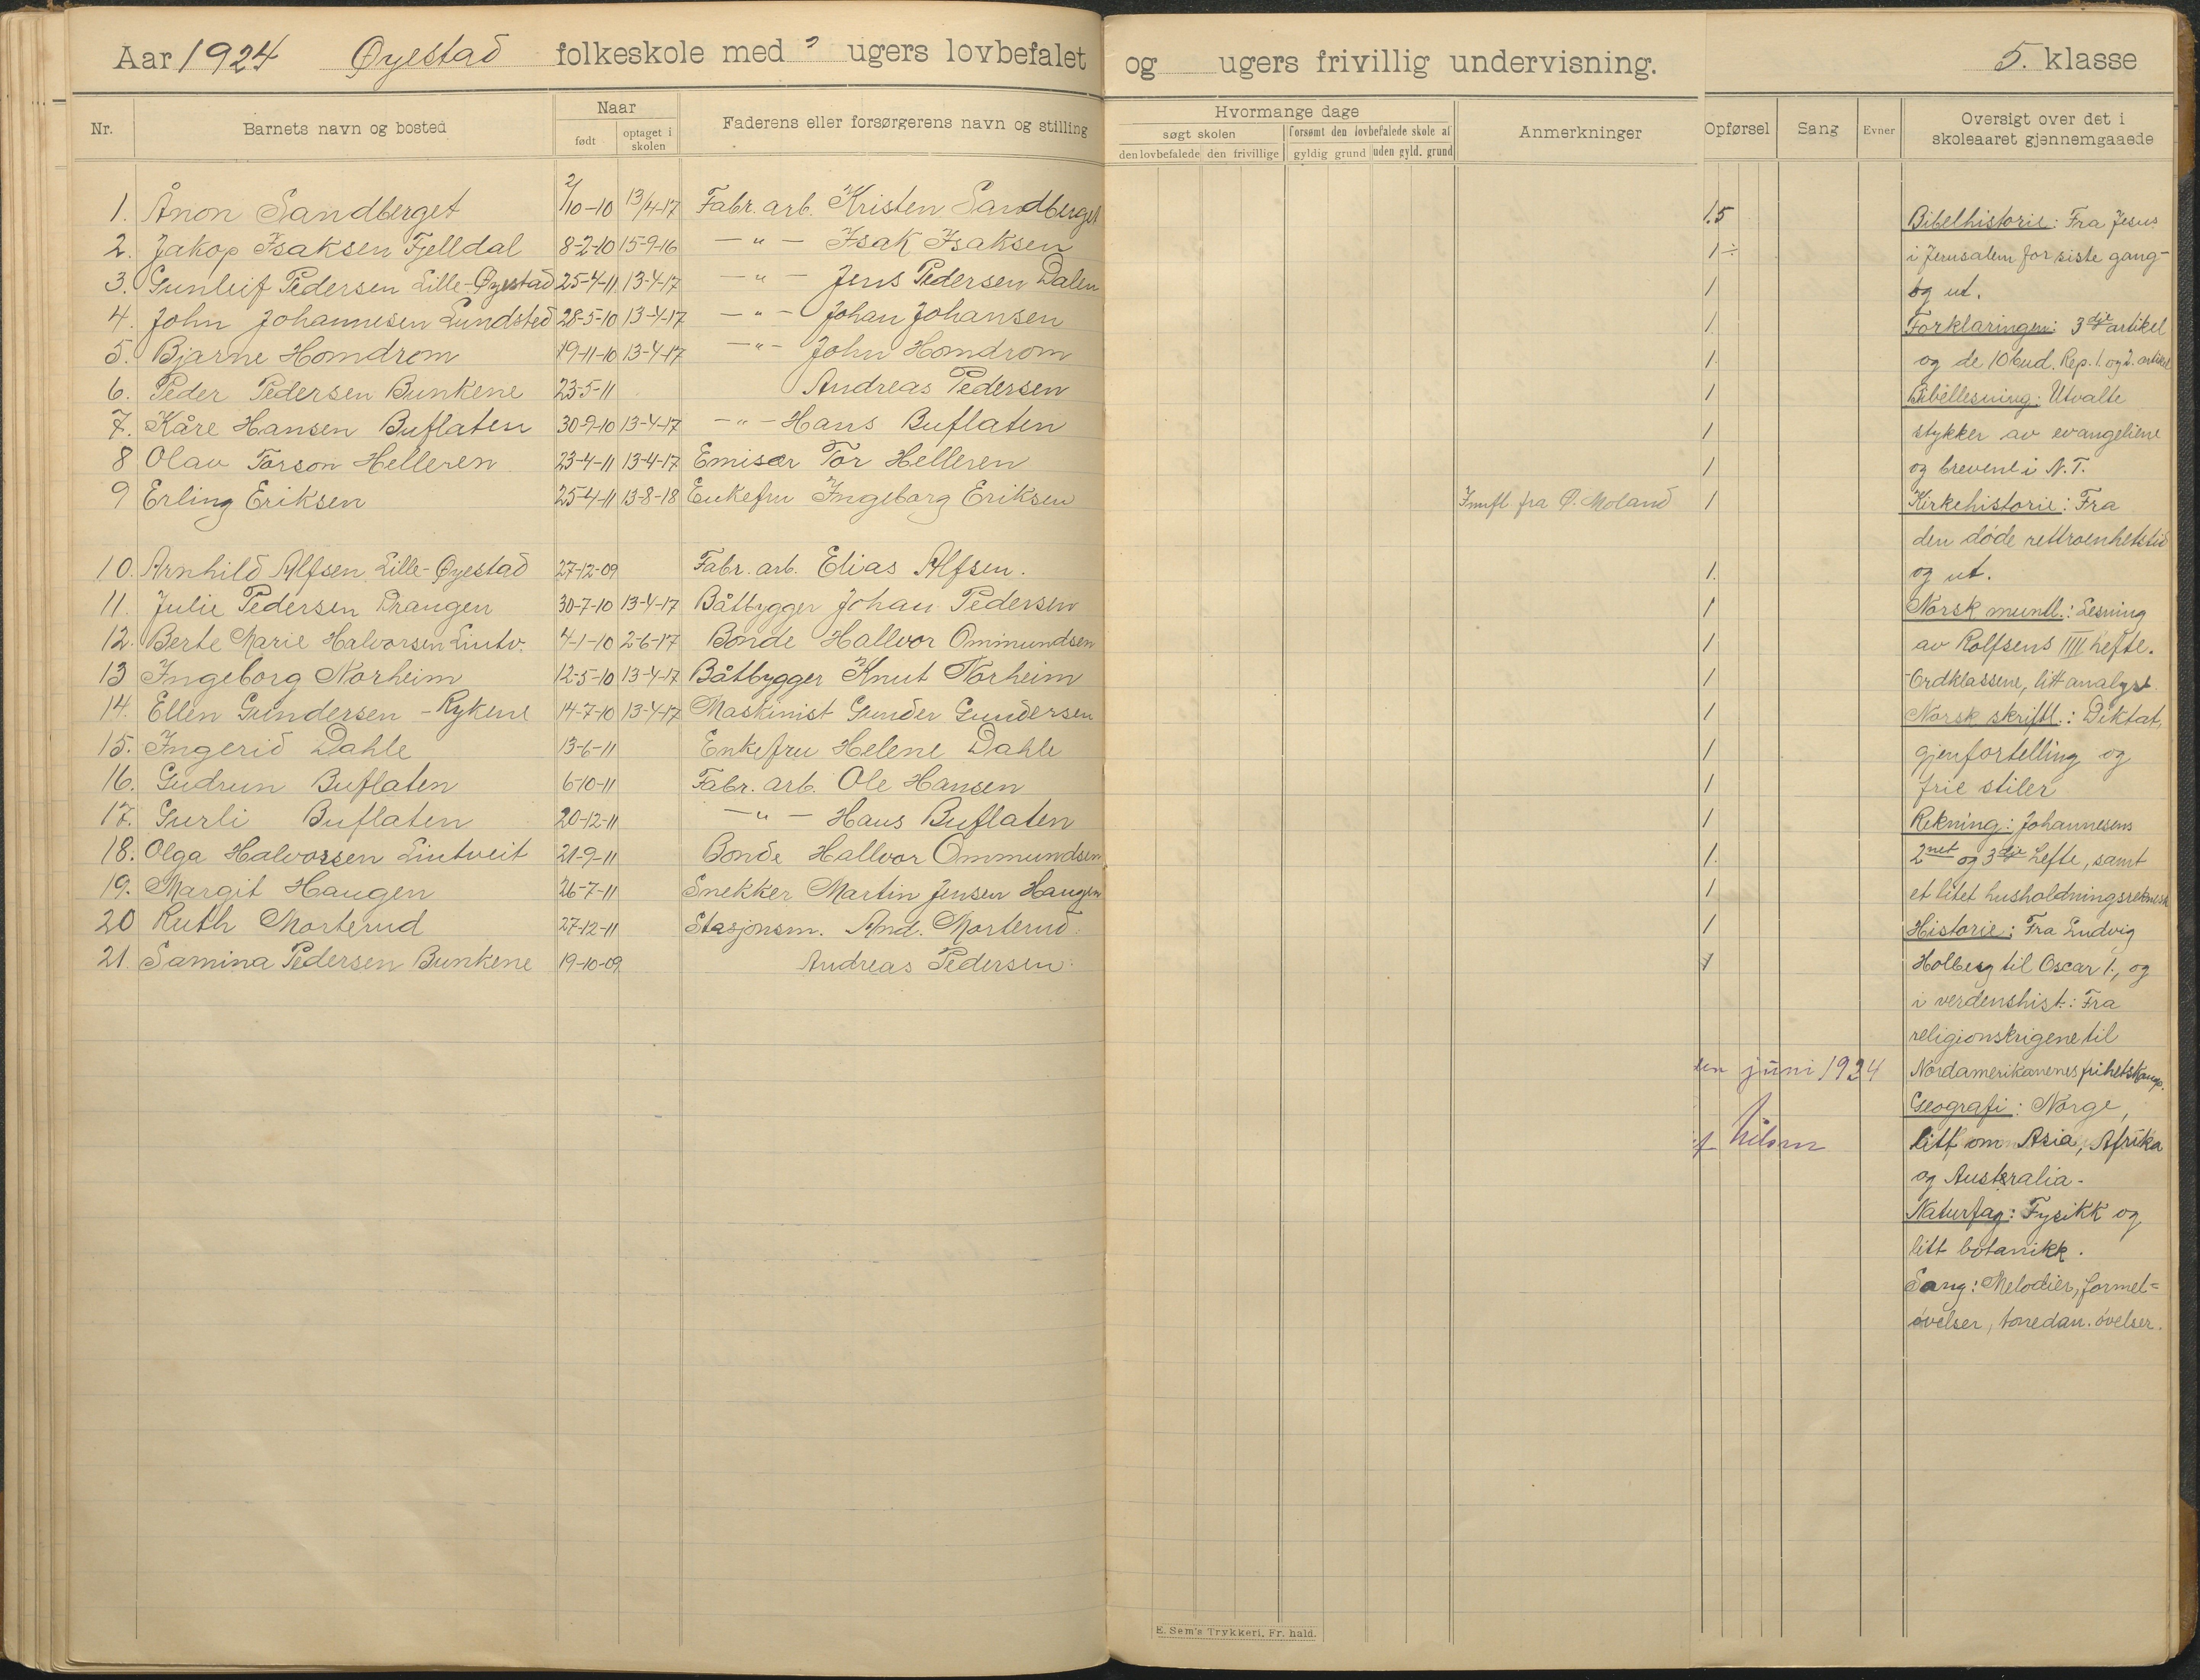 Aar 1924 Øyestad folkeskole med ugers lovbefalet og ugers frivillig undervisning. 5. klasse
Nr. Barnets navn og bosted Naar født optaget i skolen Faderens eller forsørgerens navn og stilling
Hvormange dage søgt skolen den lovbefalede den frivillige forsømt den lovbefalede skole af gyldig grund uden gyld. grund Anmerkninger
Opførsel Sang Evner Oversigt over det i skoleaaret gjennemgaaede
1. Ånon Sandberget 2/10-10 13/4-17 Fabr. arb. Kristen Sandberget 1.5
2. Jakop Isaksen Fjelldal 8-2-10 15-9-16 -"- Isak Isaksen 1÷
3. Gunleif Pedersen Lille-Øyestad 25-4-11 13-4-17 -"- Jens Pedersen Dalen 1
4. John Johannesen Lundsted 28-5-10 13-4-17 -"- Johan Johansen 1
5. Bjarne Homdrom 19-11-10 13-4-17 -"- John Homdrom 1
6. Peder Pedersen Bunkene 23-5-11 Andreas Pedersen 1
7. Kåre Hansen Buflaten 30-9-10 13-4-17 -"- Hans Buflaten 1
8 Olav Torson Helleren 23-4-11 13-4-17 Emisær Tor Helleren 1
9 Erling Eriksen 25-4-11 13-8-18 Enkefru Ingeborg Eriksen Innfl. fra Ø. Moland 1
10. Arnhild Alfsen Lille-Øyestad 27-12-09 Fabr. arb. Elias Alfsen. 1.
11. Julie Pedersen Drangen 30-7-10 13-4-17 Båtbygger Johan Pedersen 1
12. Berte Marie Halvorsen Lintv. 4-1-10 2-6-17 Bonde Hallvor Ommundsen 1
13 Ingeborg Norheim 12-5-10 13-4-17 Båtbygger Knut Norheim 1
14. Ellen Gundersen - Rykene 14-7-10 13-4-17 Maskinist Gunder Gundersen 1
15. Ingerid Dahle 13-6-11 Enkefru Helene Dahle 1
16. Gudrun Buflaten 6-10-11 Fabr. arb. Ole Hansen 1
17. Gurli Buflaten 20-12-11 -"- Hans Buflaten 1
18. Olga Halvorsen Lintveit 21-9-11 Bonde Hallvor Ommundsen 1.
19. Margit Haugen 26-7-11 Snekker Martin Jensen Haugen 1
20 Ruth Morterud 27-12-11 Stasjonsm. And. Morterud. 1
21. Samina Pedersen Bunkene 19-10-09 Andreas Pedersen. 1
juni 1924
Nilsen
Bibelhistorie: Fra Jesus
i Jerusalem for siste gang-
og ut.
Forklaringen: 3dje artikel
og de 10 bud. Rep. 1. og 2. artikel
Bibellesning: Utvalte
stykker av evangeliene
og brevene i N.T.
Kirkehistorie: Fra
den døde rettroenhetstid
og ut.
Norsk muntl.: Lesning
av Rolfsens IIII hefte.
Ordklassene, litt analyse
Norsk skriftl.: Diktat,
gjenfortelling og
frie stiler
Rekning: Johannesens
2net og 3dje Hefte, samt
et litet husholdningsreknesk
Historie: Fra Ludvig
Holberg til Oscar 1., og
i verdenshist.: Fra
religionskrigene til
Nordamerikanenes frihetskamp.
Geografi: Norge,
litt om Asia, Afrika
og Australia.
Naturfag: Fysikk og
litt botanikk.
Sang: Melodier, formel=
øvelser, tonedan. øvelser.
E. Sem's Trykkeri, Fr. hald.